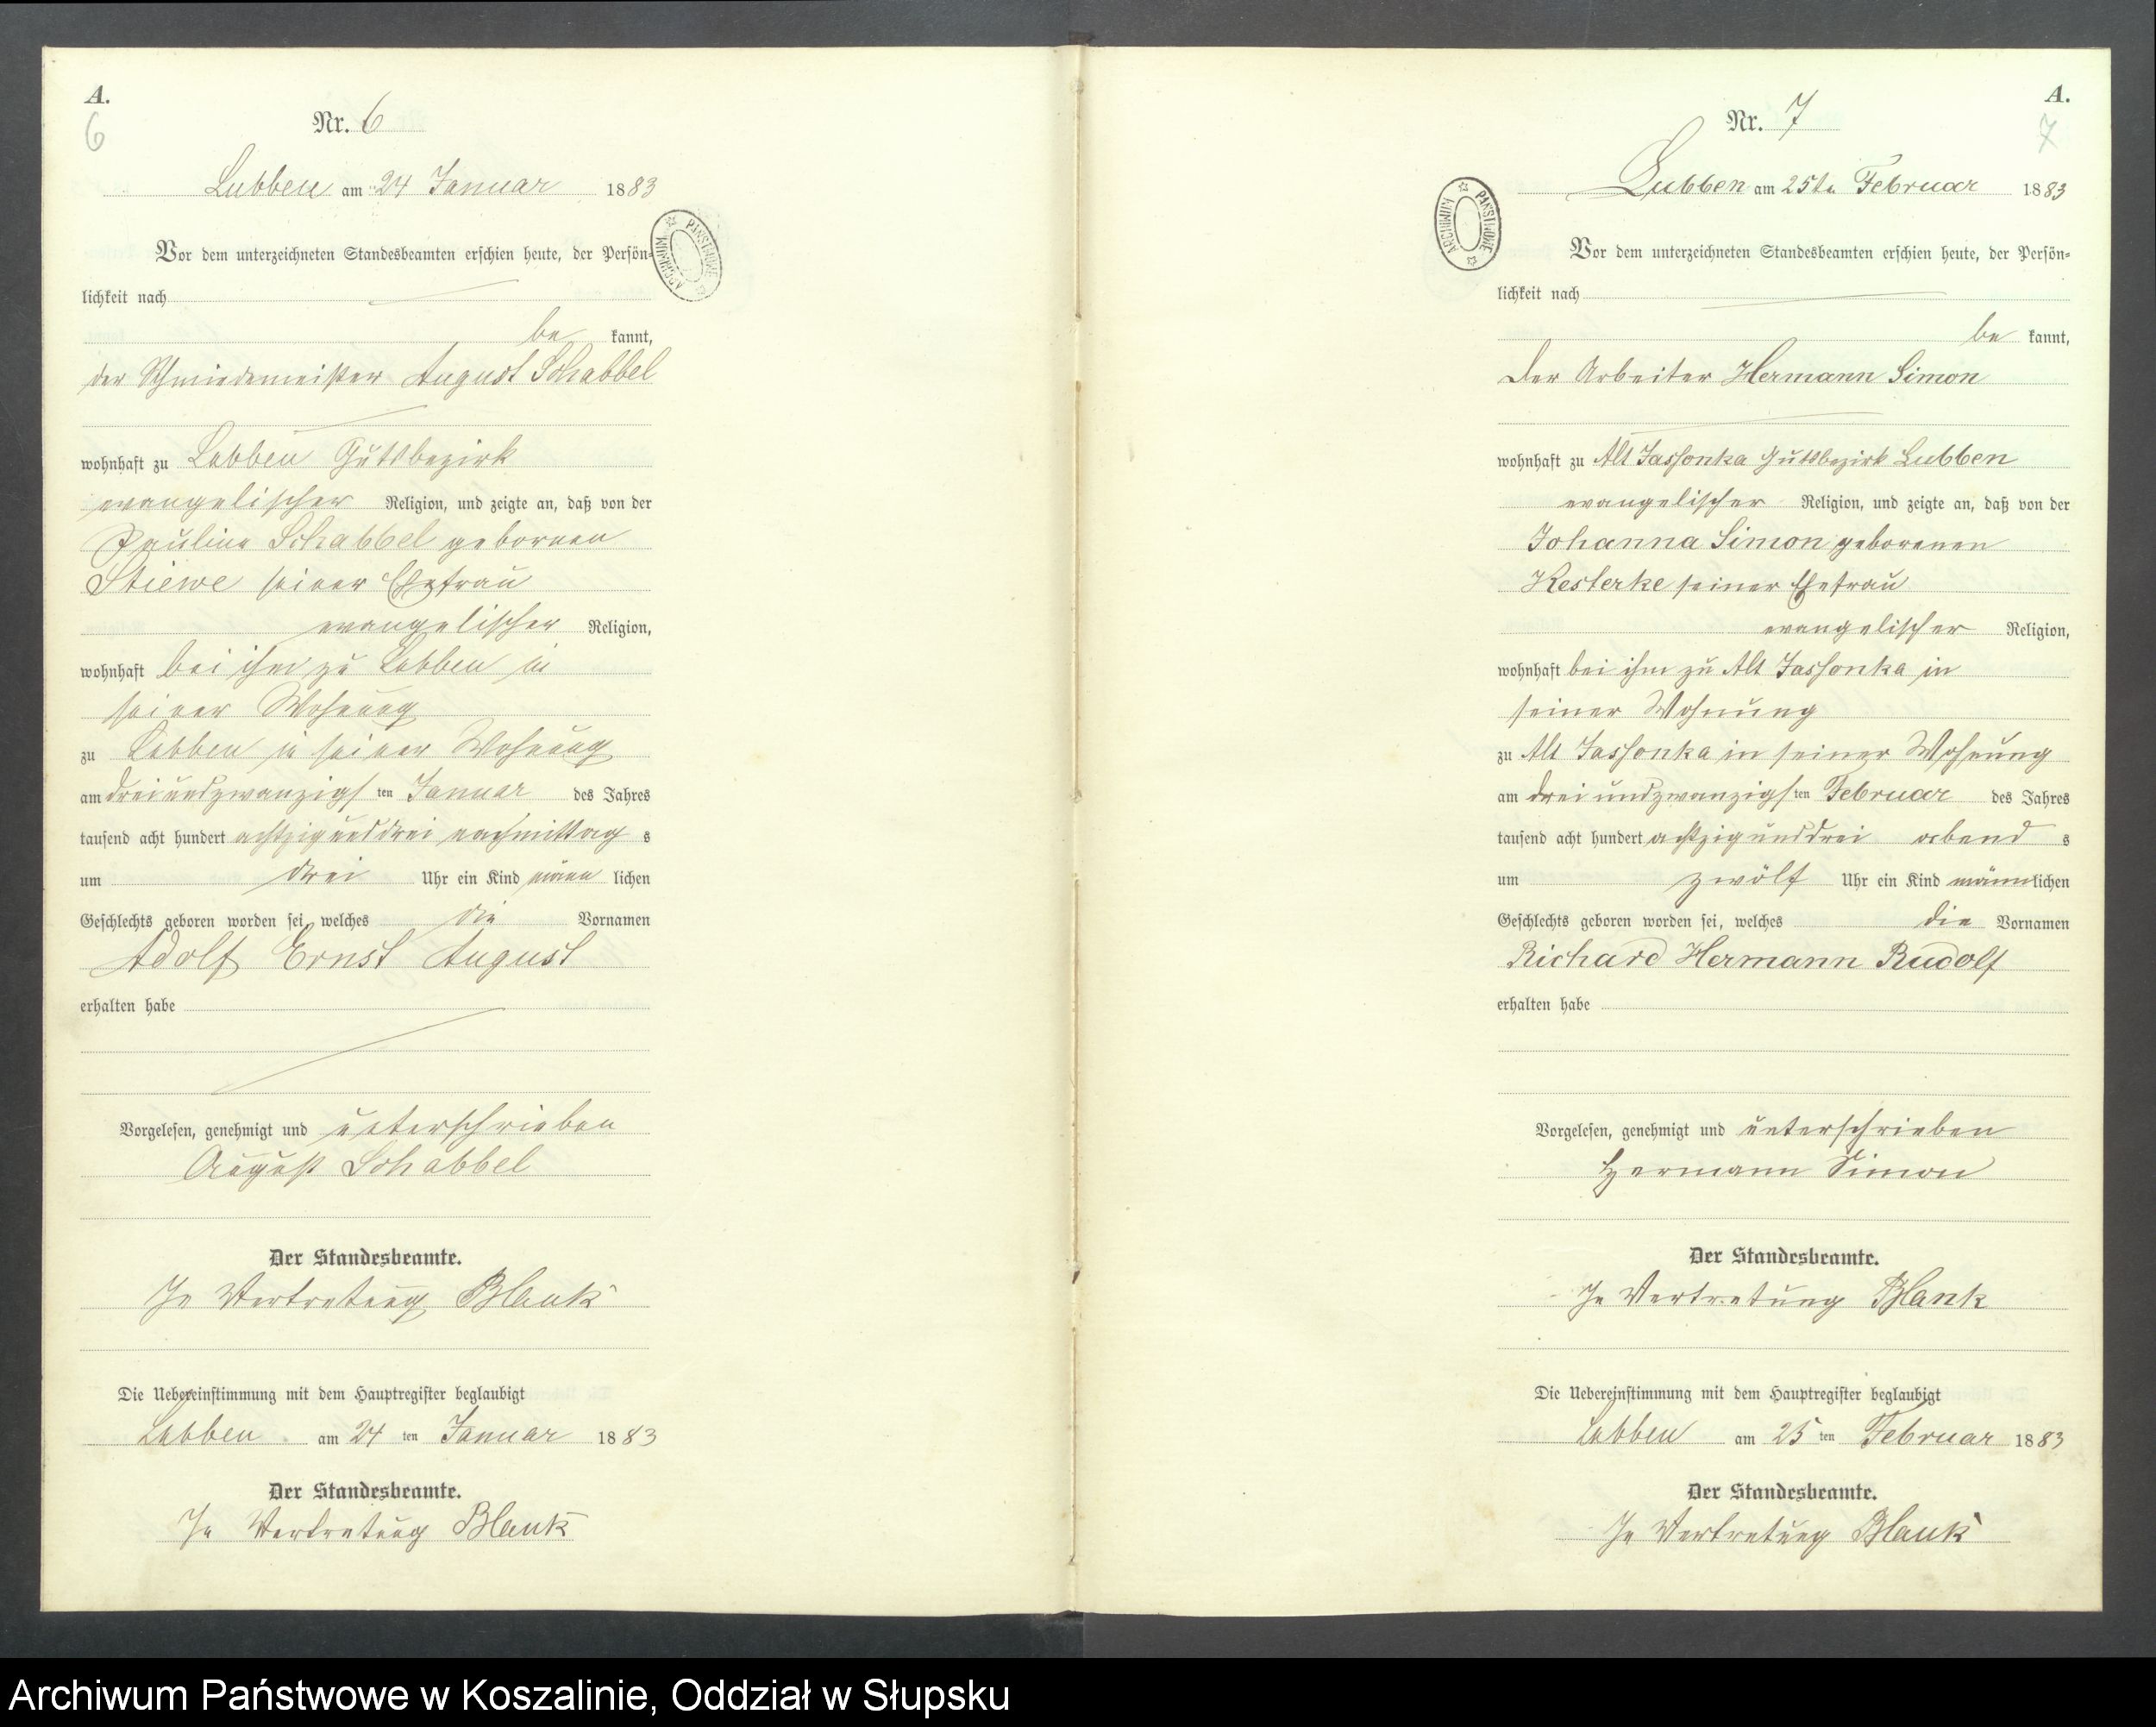 A.
6
Nr. 6
Lubben am 24 Januar 1883
Vor dem unterzeichneten Standesbeamten erschien heute, der Persön-
lichkeit nach
be kannt,
der Schmiedemeister August Schabbel
wohnhaft zu Lubben Gutsbezirk
evangelischer Religion, und zeigte an, daß von der
Pauline Schabbel gebornen
Stiewe seiner Ehefrau
evangelischer Religion,
wohnhaft bei ihm zu Lubben in
seiner Wohnung
zu Lubben in seiner Wohnung
am dreiundzwanzigs ten Januar des Jahres
tausend acht hundert achtzig und drei nachmittag s
um drei Uhr ein Kind männ lichen
Geschlechts geboren worden sei, welches die Vornamen
Adolf Ernst August
erhalten habe
Vorgelesen, genehmigt und unterschrieben
August Schabbel
Der Standesbeamte.
In Vertretung Blank
Die Uebereinstimmung mit dem Hauptregister beglaubigt
Lubben am 24 ten Januar 1883
Der Standesbeamte.
In Vertretung Blank
ARCHIWUM PAŃSTWOWE
A.
7
Nr. 7
Lubben am 25te Februar 1883
Vor dem unterzeichneten Standesbeamten erschien heute, der Persön-
lichkeit nach
be kannt,
der Arbeiter Hermann Simon
wohnhaft zu Alt Jassonka Gutsbezirk Lubben
evangelischer Religion, und zeigte an, daß von der
Johanna Simon geborenen
Kesterke seiner Ehefrau
evangelischer Religion,
wohnhaft bei ihm zu Alt Jassonka in
seiner Wohnung
zu Alt Jassonka in seiner Wohnung
am dreiundzwanzigs ten Februar des Jahres
tausend acht hundert achtzig und drei abend s
um zwölf Uhr ein Kind männlichen
Geschlechts geboren worden sei, welches die Vornamen
Richard Hermann Rudolf
erhalten habe
Vorgelesen, genehmigt und unterschrieben
Hermann Simon
Der Standesbeamte.
In Vertretung Blank
Die Uebereinstimmung mit dem Hauptregister beglaubigt
Lubben am 25 ten Februar 1883
Der Standesbeamte.
In Vertretung Blank
ARCHIWUM PAŃSTWOWE
Archiwum Państwowe w Koszalinie, Oddział w Słupsku